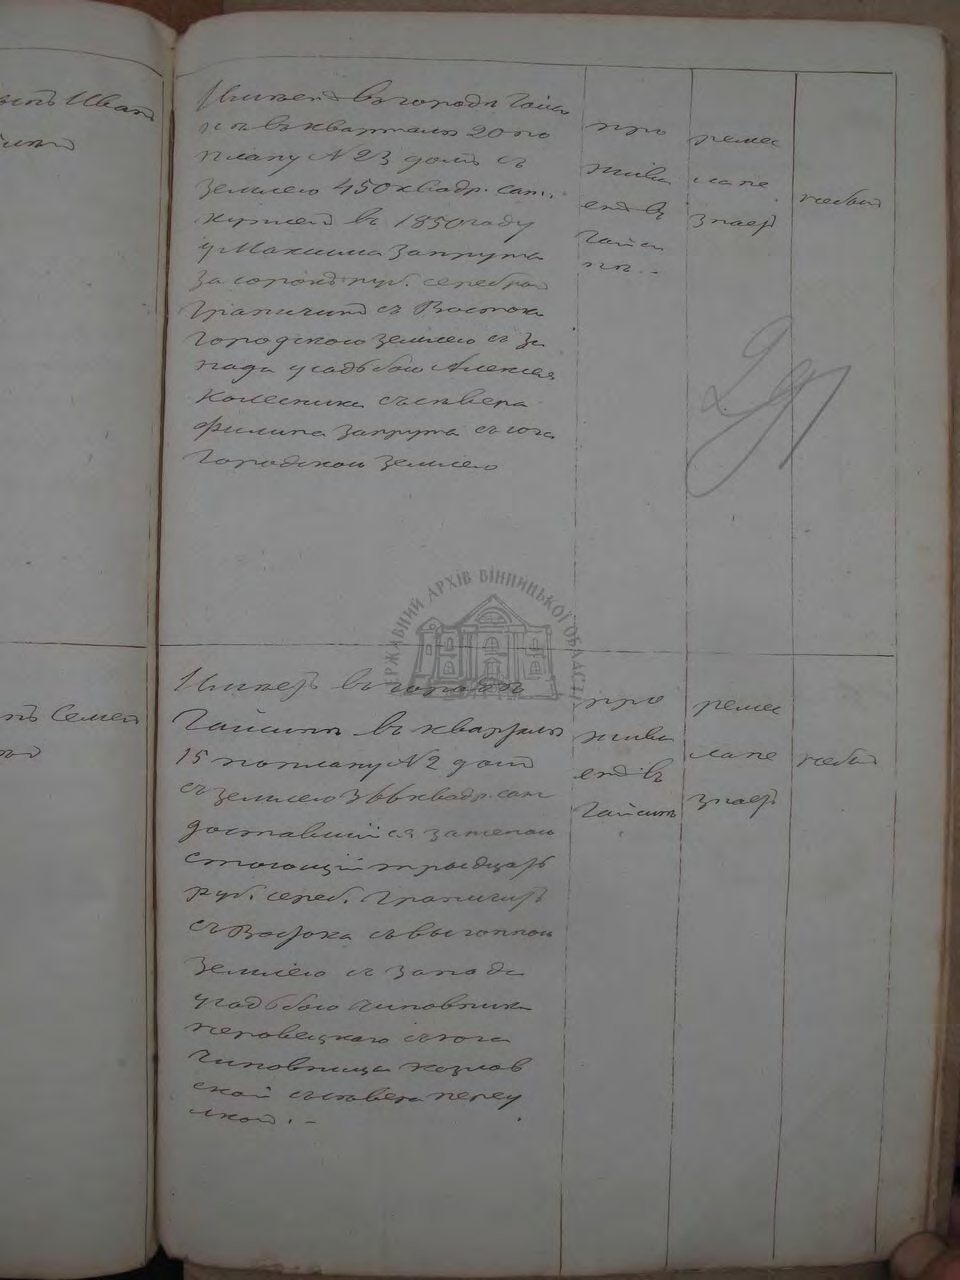 Иванъ
Имѣетъ въ городѣ Гайси
нѣ въ кварталѣ 20 по
плану N 23 домъ съ
землею 450 квадр. саж.
купленъ въ 1850 году
у Максима Запрута
за сорокъ руб. серебромъ
Граничитъ съ Востока
городскою землею съ За
пада усадьбою Алексея
Колесника съ сѣвера
Филипа Запрута съ юга
Городскою землею
про
жива
етъ въ
Гайси
нѣ
ремес
ла не
знаетъ
не былъ
ДЕРЖАВНИЙ АРХІВ ВІННИЦЬКОЇ ОБЛАСТІ
Семенъ
Имѣетъ въ городѣ
Гайсинѣ въ кварталѣ
15 по плану N 2 домъ
съ землею 366 квадр. саж
доставшійся за женою
стоющій тридцать
руб. сереб. Граничитъ
съ Востока съ выгонною
землею съ Запада
усадьбою чиновника
съ юга
чиновницы Козлов
ской съ сѣвера переу
лкомъ.
про
жива
етъ въ
Гайсинѣ
ремес
ла не
знаетъ
не былъ